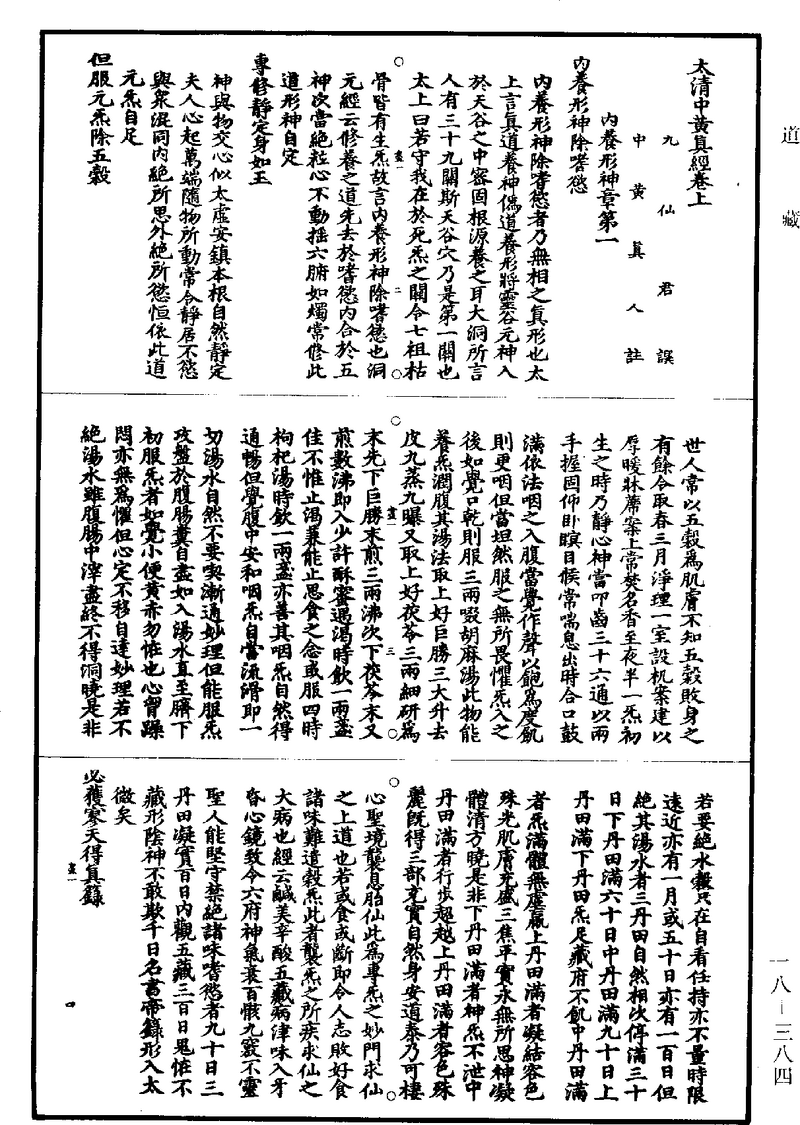 道藏
太清中黄真經卷上
九仙君譔
中黄真人註
内養形神章第一
内養形神除嗜慾
内養形神除嗜慾者乃無相之真形也太
上言真道養神僞道養形將靈谷元神入
於天谷之中密固根源養之耳大洞所言
人有三十九關斯天谷穴乃是第一關也
太上曰若守我在於死炁之關令七祖枯
骨皆有生炁故言内養形神除嗜慾也洞
元經云修養之道先去於嗜慾内合於五
神次當絶粒心不動揺六腑如燭常修此
道形神自定
專修靜定身如玉
神與物交心似太虚安鎮本根自然靜定
夫人心起萬端隨物所動常令靜居不慾
與衆混同内絶所思外絶所慾恒依此道
元炁自足
但服元炁除五穀
世人常以五穀爲肌膚不知五穀敗身之
有餘令取春三月淨理一室設机案建以
厚暖牀蓆案上常焚名香至夜半一炁初
生之時乃靜心神當叩齒三十六通以兩
手握固仰卧瞑目候常喘息出時合口鼓
滿依法咽之入腹當覺作聲以飽爲度飢
則更咽但當坦然服之無所畏懼炁入之
後如覺口乾則服三兩啜胡麻湯此物能
養炁潤腹其湯法取上好巨勝三大升去
皮九蒸九曝又取上好茯苓三兩細研爲
末先下巨勝末煎三兩沸次下茯苓末又
煎數沸即入少許酥蜜遇渇時飲一兩盞
佳不惟止渇兼能止思食之念或服四時
枸杞湯時飲一兩盞亦善其咽炁自然得
通暢但覺腹中安和咽炁自當流滑即一
切湯水自然不要喫漸通妙理但能服炁
攻盤於腹腸糞自盡如入湯水直至臍下
初服炁者如覺小便黄赤勿恠也心胷躁
悶亦無爲懼但心定不移自達妙理若不
絶湯水雖腹腸中滓盡終不得洞曉是非
若要絶水穀只在自看任持亦不量時限
遠近亦有一月或五十日亦有一百日但
絶其湯水者三丹田自然相次停滿三十
日下丹田滿六十日中丹田滿九十日上
丹田滿下丹田炁足藏府不飢中丹田滿
者炁滿體無虚羸上丹田滿者凝結容色
殊光肌膚充盛三焦平實永無所思神凝
體清方曉是非下丹田滿者神炁不泄中
丹田滿者行步超越上丹田滿者容色殊
麗既得三部充實自然身安道泰乃可棲
心聖境襲息胎仙此爲專炁之妙門求仙
之上道也若或食或斷即令人志敗好食
諸味難遣穀炁此者襲炁之所疾求仙之
大病也經云鹹美辛酸五藏病津味入牙
昏心鏡致令六府神氣衰百骸九竅不靈
聖人能堅守禁絶諸味嗜慾者九十日三
丹田凝實百日内觀五藏三百日鬼恠不
藏形陰神不敢欺千日名書帝籙形入太
微矣
必獲寥天得真籙
一八－三八四